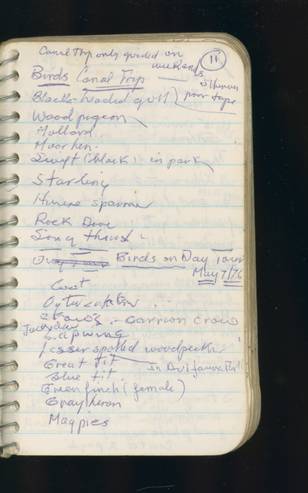 Canal Trip only guided on
weekends
11
Birds Canal Trip
Black-headed gull
Wood pigeon
Mallard
Moor hen
Swift (black) in park
Starling
House sparrow
Rock Dove
Song thrush
Birds on Day Tour
May 7/76
Coot
Oystercatcher
Carrion crow
Jackdaw
Lapwing
Lesser spotted woodpecker
Great tit
Blue tit
Greenfinch (female)
Gray heron
Magpies